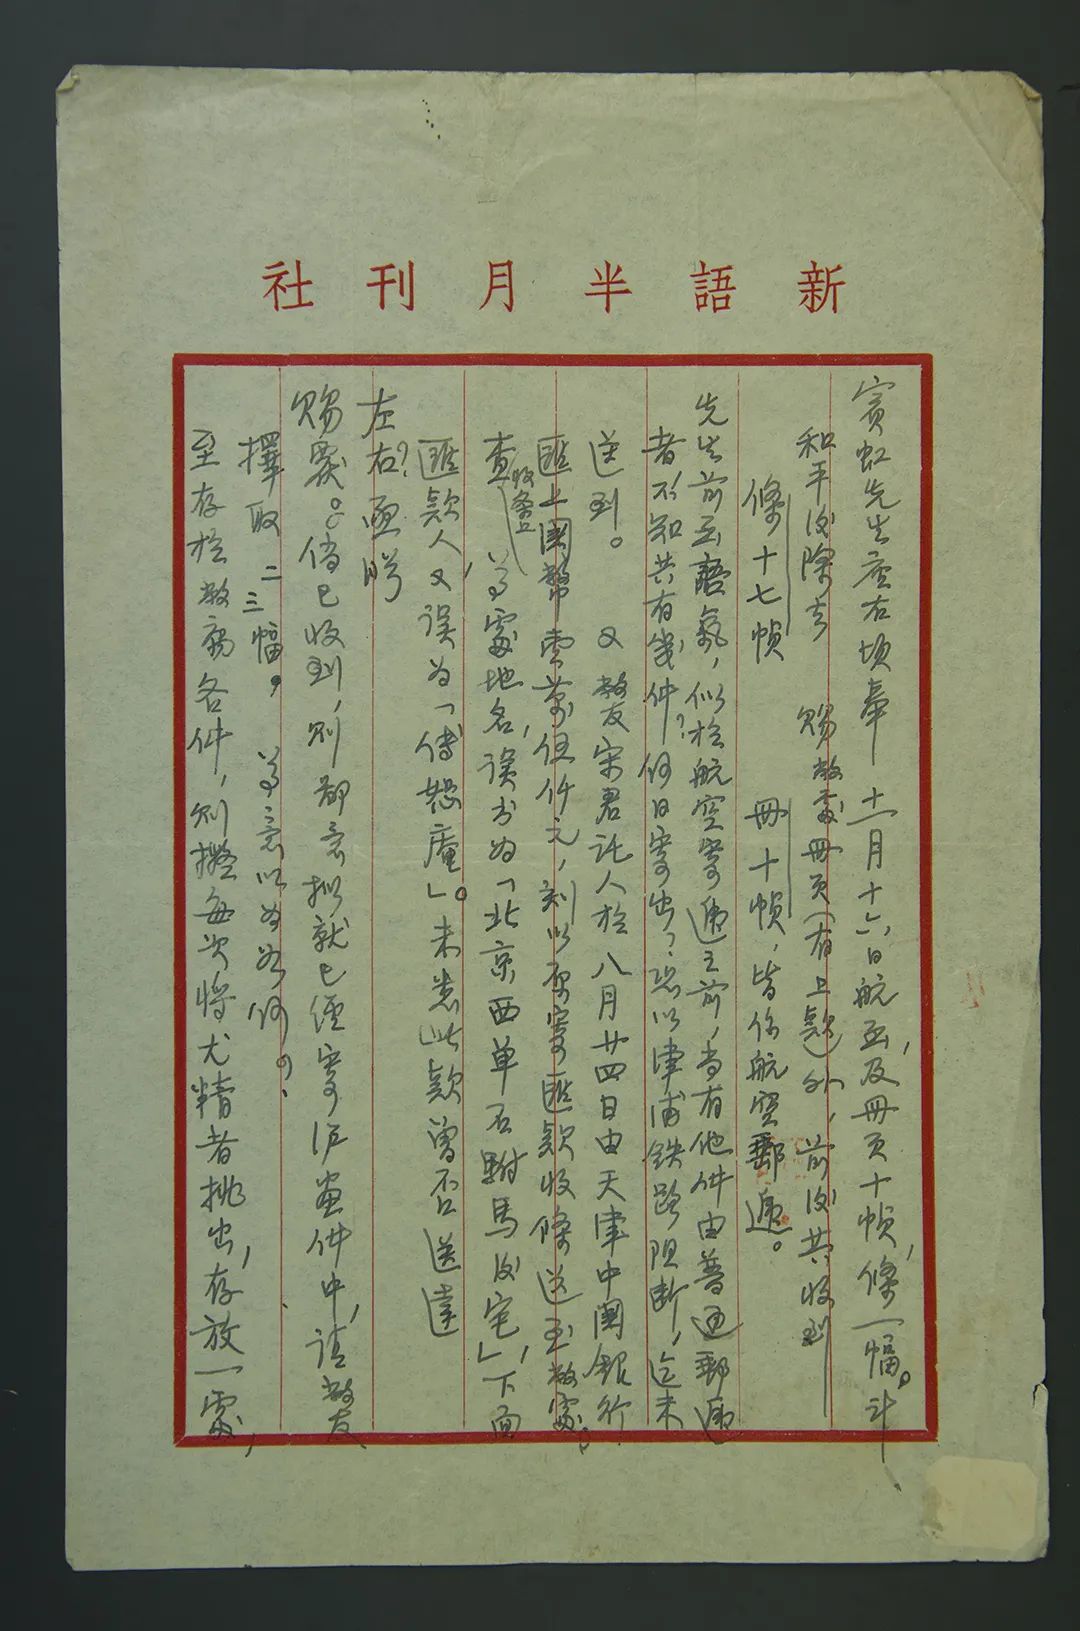 新語半月刊社
賓虹先生座右頃奉 十一月十六日航函,及冊頁十幀,條一幅。計
和平後除去 賜敝處冊頁(有上款)外,前後共收到
條十七幀 冊十幀,皆係航空郵遞。
先生前函語氣,似於航空寄遞之前,尚有他件由普通郵遞
者,不知共有幾件?何日寄出?恐以津浦鉄路阻断,迄未
送到。 又敝友宋君託人於八月廿四日由天津中國銀行
匯上國幣壹萬伍仟元,刻以原寄匯款收條送至敝處。
查收條上 尊處地名,误书为「北京西单石駙馬後宅」,下面
匯款人又误为「傅怒庵」。未悉此款曾否送達
左右?函盼
賜覆。倘已收到,则鄙意拟就已經寄沪畫件中,請敝友
擇取二三幅。 尊意以为如何?
至存於敝齋各件,则擬每次將尤精者挑出,存放一處,